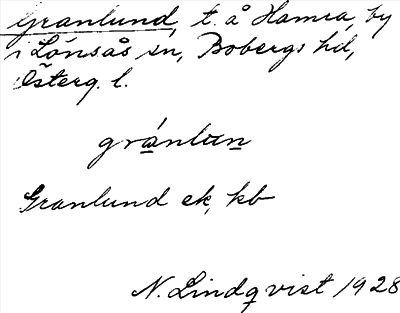 Granlund, t. å Hamra, by
i Lönsås sn, Bobergs hd,
Österg. l.
gránlun
Granlund ek, kb
N. Lindqvist 1928